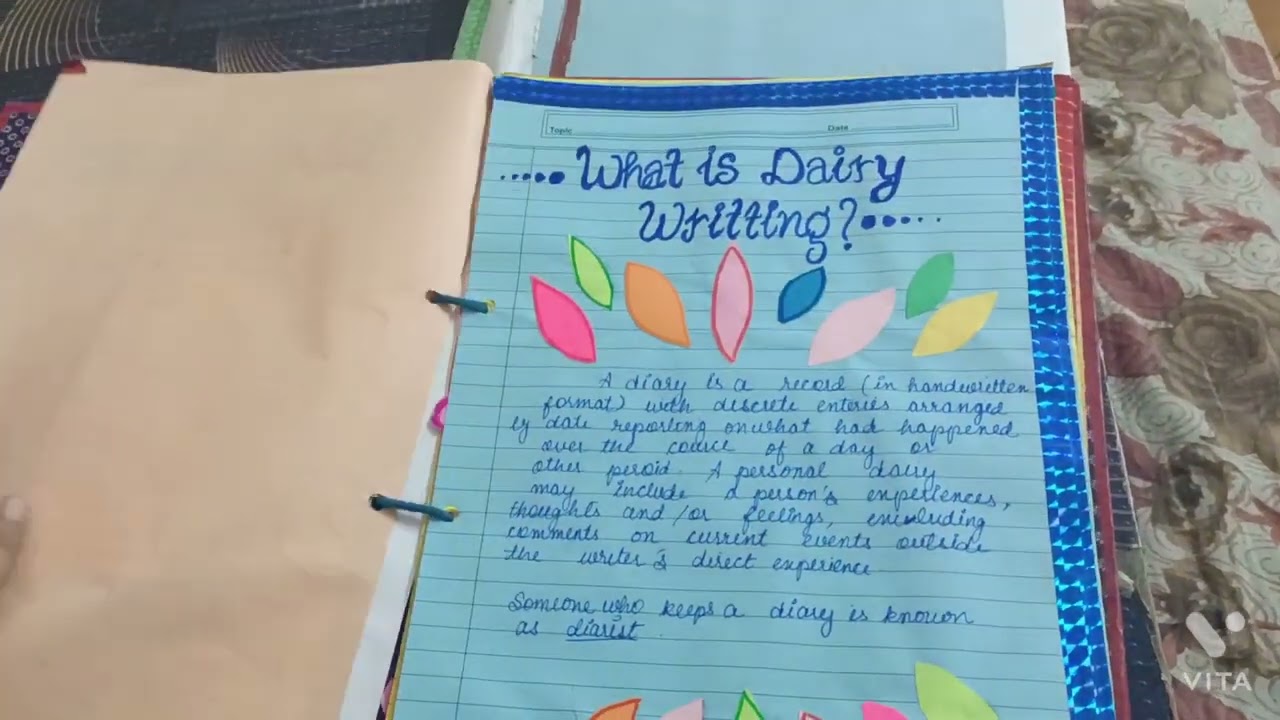 Topic Date
What is Dairy
Writting?
A diary is a record (in handwritten
format) with discrete enteries arranged
by date reporting on what had happened
over the cource of a day or
other peroid. A personal dairy
may include a person's experiences,
thoughts and/or feelings, excluding
comments on current events outside
the writer's direct experience
Someone who keeps a diary is known
as diarist
VITA